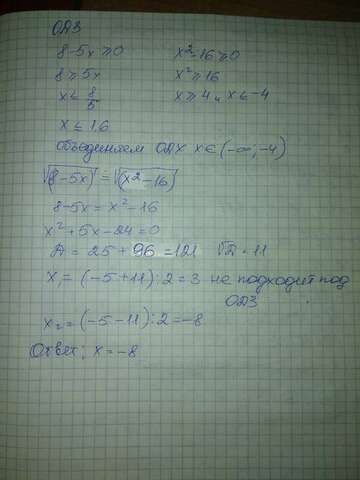 ОДЗ
8-5x ≥ 0 x²-16 ≥ 0
8 ≥ 5x x² ≥ 16
x ≤ 8/5 x ≥ 4 и x ≤ -4
x ≤ 1,6
Объединяем ОДХ x ∈ (-∞, -4)
√(8-5x) = √(x²-16)
8-5x = x²-16
x²+5x-24=0
Д = 25+96=121 √D = 11
x₁ = (-5+11):2=3 не подходит под
ОДЗ
x₂ = (-5-11):2=-8
Ответ; x=-8